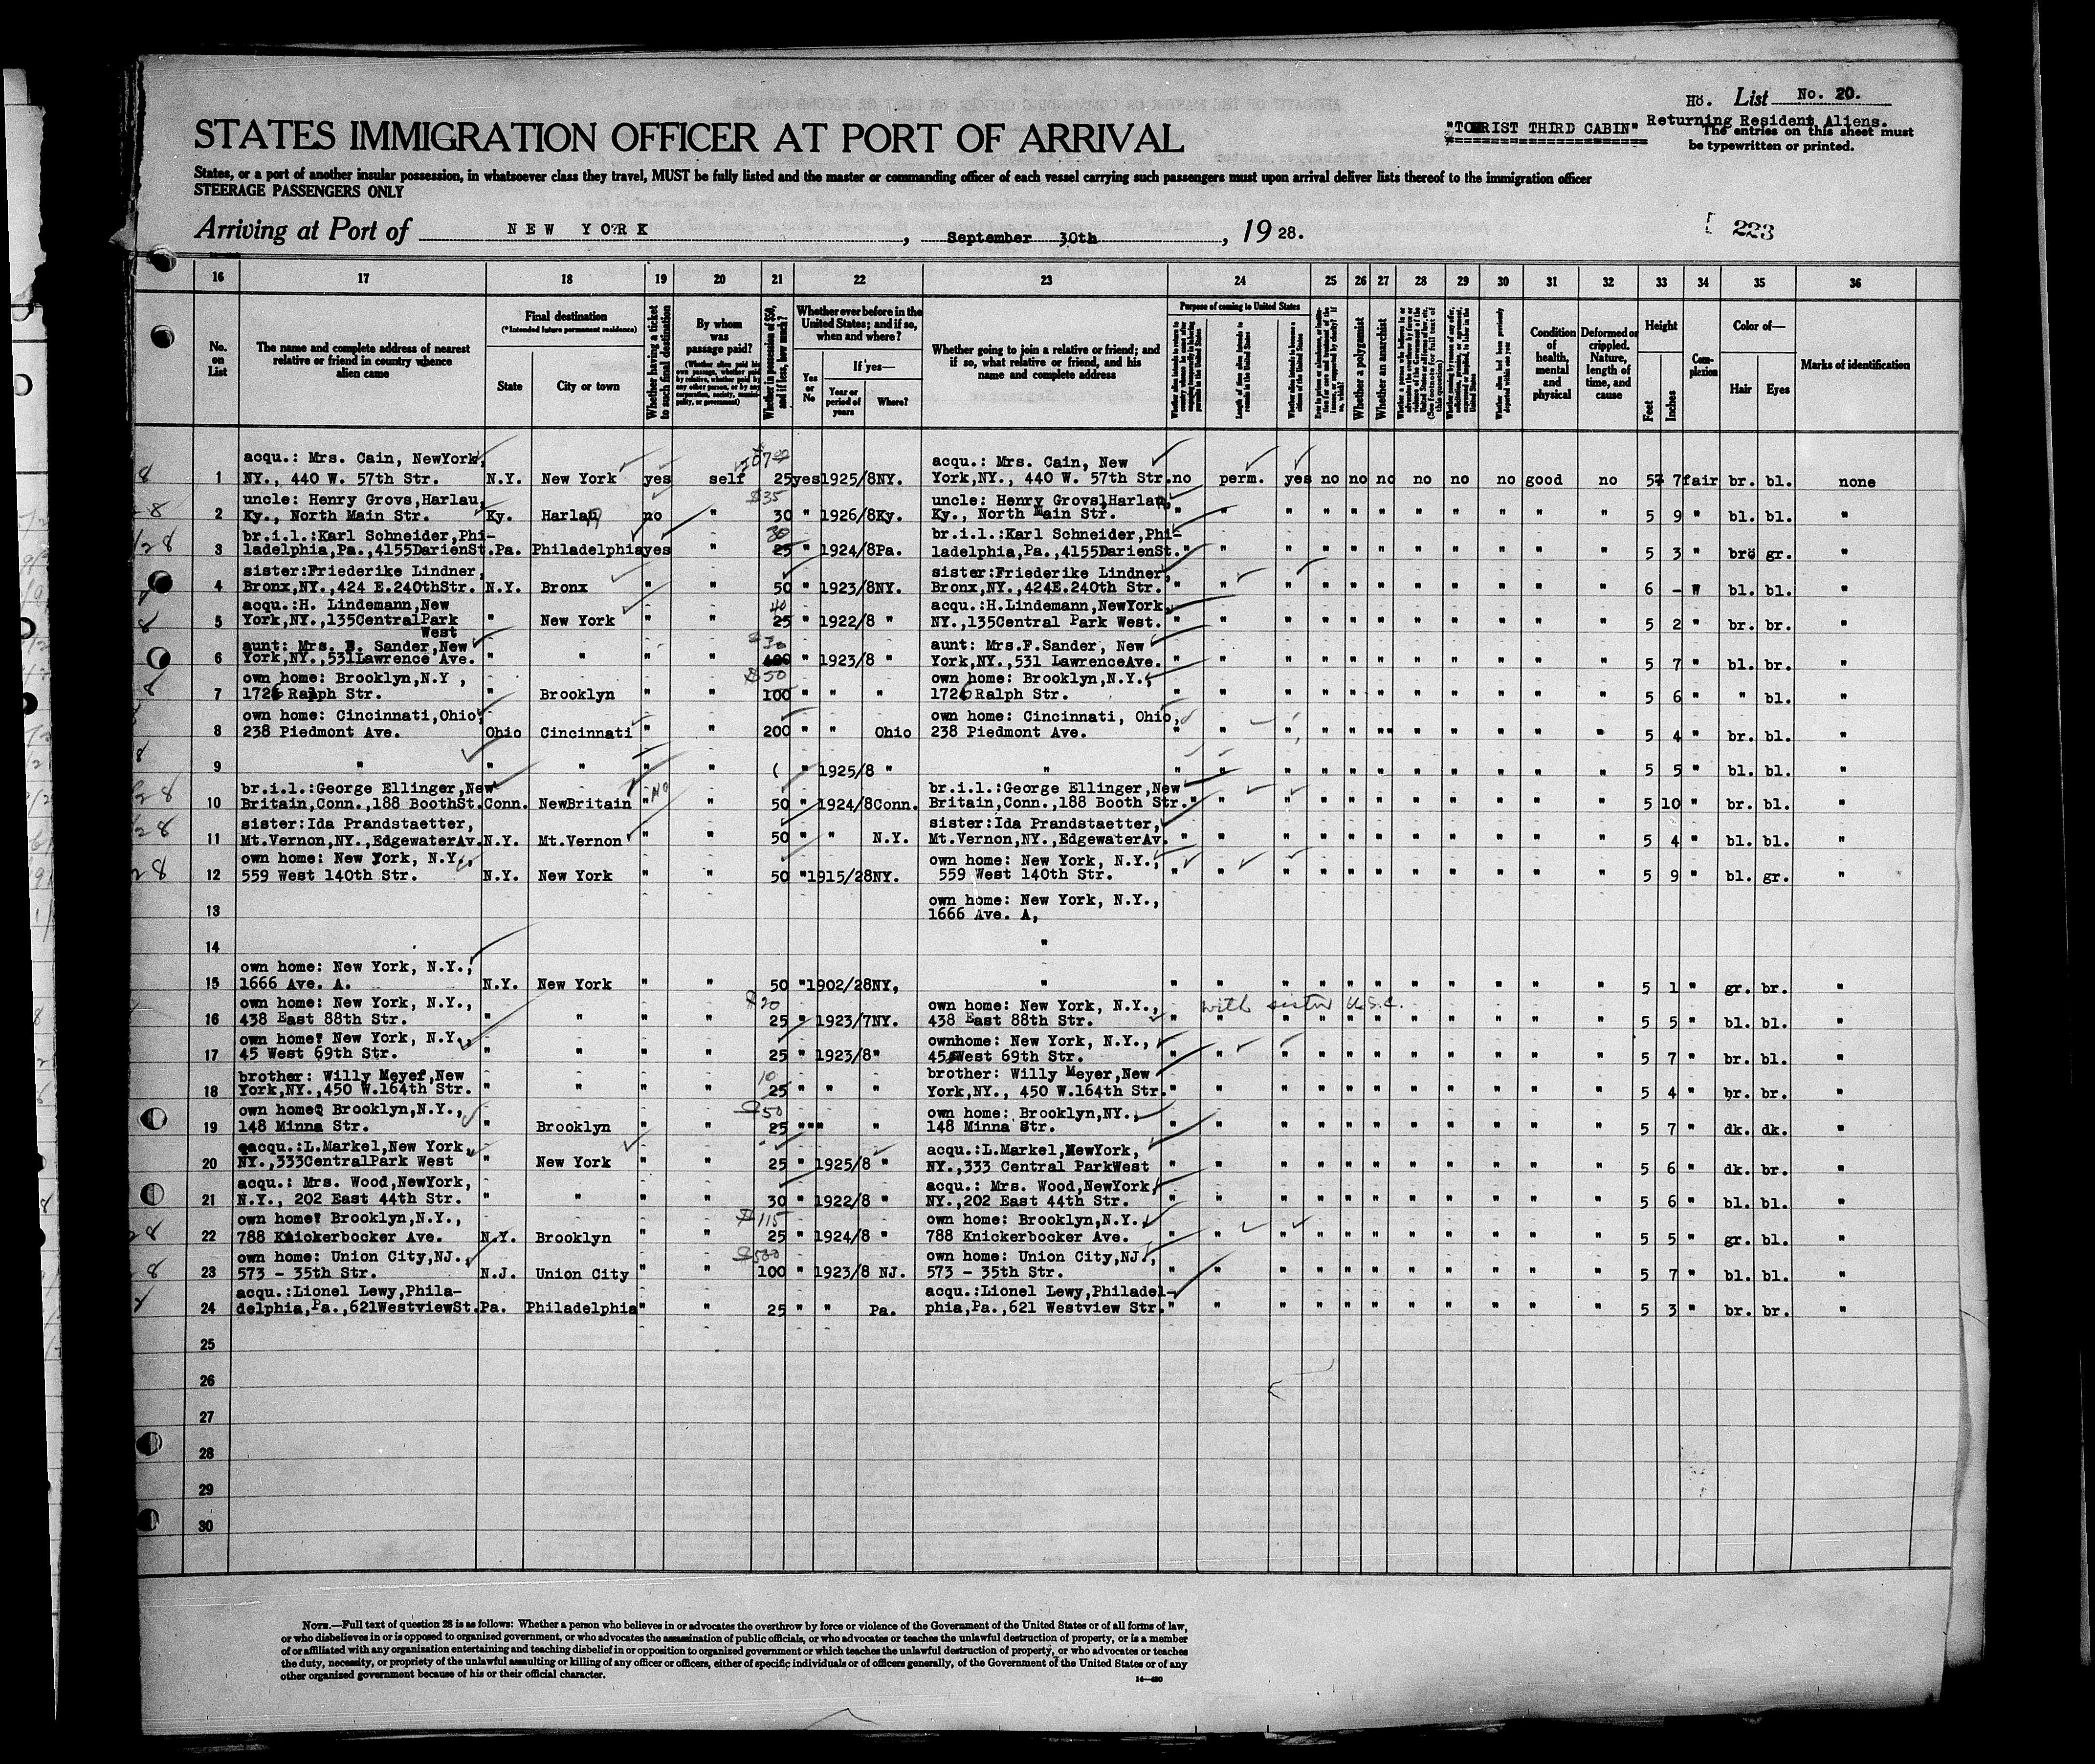 Ho. List No. 20.
"TOURIST THIRD CABIN" Returning Resident Aliens.
The entries on this sheet must
be typewritten or printed.
STATES IMMIGRATION OFFICER AT PORT OF ARRIVAL
States, or a port of another insular possession, in whatsoever class they travel, MUST be fully listed and the master or commanding officer of each vessel carrying such passengers must upon arrival deliver lists thereof to the immigration officer
STEERAGE PASSENGERS ONLY
Arriving at Port of NEW YORK, September 30th, 19 28.
223
16 17 18 19 20 21 22 23 24 25 26 27 28 29 30 31 32 33 34 35 36
No. on List
The name and complete address of nearest relative or friend in country whence alien came
Final destination
(*Intended future permanent residence)
State
City or town
Whether having a ticket to such final destination
By whom was passage paid?
Whether in possession of $50, and if less, how much?
Whether ever before in the United States; and if so, when and where?
Yes or No
If yes—
Year or period of years
Where?
Whether going to join a relative or friend; and if so, what relative or friend, and his name and complete address
Purpose of coming to United States
Whether a polygamist
Whether an anarchist
Condition of health, mental and physical
Deformed or crippled. Nature, length of time, and cause
Height
Feet
Inches
Complexion
Color of—
Hair
Eyes
Marks of identification
acqu.: Mrs. Cain, NewYork, acqu.: Mrs. Cain, New
1 NY., 440 W. 57th Str. N.Y. New York yes self 25 yes 1925/8 NY. York,NY., 440 W. 57th Str. no perm. yes no no no no no no good no 5 7 fair br. bl. none
uncle: Henry Grovs,Harlau, $35 uncle: Henry Grovs,Harlau,
2 Ky., North Main Str. Ky. Harlan no " 30 " 1926/8 Ky. Ky., North Main Str. " " " " " " " " " " " 5 9 " bl. bl. "
br.i.l.:Karl Schneider,Phi- 30 br.i.l.:Karl Schneider,Phi-
3 ladelphia,Pa.,4155DarienSt. Pa. Philadelphia yes " 25 " 1924/8 Pa. ladelphia,Pa.,4155DarienSt. " " " " " " " " " " " 5 3 " bro gr. "
sister:Friederike Lindner, sister:Friederike Lindner,
4 Bronx,NY.,424 E.240thStr. N.Y. Bronx " " 50 " 1923/8 NY. Bronx,NY.,424E.240th Str. " " " " " " " " " " " 6 - W bl. bl. "
acqu.:H. Lindemann,New 40 acqu.:H.Lindemann,NewYork,
5 York,NY.,135CentralPark " New York " " 25 " 1922/8 " NY.,135Central Park West. " " " " " " " " " " " 5 2 " br. br. "
West
aunt: Mrs. F. Sander,New $30 aunt: Mrs.F.Sander, New
6 York,NY.,531Lawrence Ave. " " " " " 1923/8 " York,NY.,531 LawrenceAve. " " " " " " " " " " " 5 7 " bl. br. "
own home: Brooklyn,N.Y , $50 own home: Brooklyn,N.Y.,
7 1726 Ralph Str. " Brooklyn " " 100 " " " 1726 Ralph Str. " " " " " " " " " " " 5 6 " " bl. "
own home: Cincinnati,Ohio, own home: Cincinnati, Ohio,
8 238 Piedmont Ave. Ohio Cincinnati " " 200 " " Ohio 238 Piedmont Ave. " " " " " "" " " " " " 5 4 " br. bl. "
9 " " " " ( " 1925/8 " " " " " " " " " " " " " 5 5 " bl. bl. "
br.i.l.:George Ellinger,New No br.i.l.:George Ellinger,New
10 Britain,Conn.,188 BoothSt. Conn. NewBritain " " 50 " 1924/8 Conn. Britain,Conn.,188 Booth Str. " " " " " " " " " " " 5 10 " br. bl. "
sister:Ida Prandstaetter, sister:Ida Prandstaetter,
11 Mt.Vernon,NY.,EdgewaterAv. N.Y. Mt.Vernon " " 50 " " N.Y. Mt.Vernon,NY.,EdgewaterAv. " " " " " " " " " " " 5 4 " bl. bl. "
own home: New York, N.Y., own home: New York, N.Y.,
12 559 West 140th Str. N.Y. New York " " 50 " 1915/28 NY. 559 West 140th Str. " " " " " " " " " " " 5 9 " bl. gr. "
own home: New York, N.Y.,
13 1666 Ave. A,
14 "
own home: New York, N.Y.,
15 1666 Ave. A. N.Y. New York " " 50 " 1902/28 NY, " " " " " " " " " " " " 5 1 " gr. br. "
own home: New York, N.Y., $20 own home: New York, N.Y., with sister U.S.C.
16 438 East 88th Str. " " " " 25 " 1923/7 NY. 438 East 88th Str. " " " " " " " " " " " 5 5 " bl. bl. "
own home: New York, N.Y. ownhome: New York, N.Y.,
17 45 West 69th Str. " " " " 25 " 1923/8 " 45 West 69th Str. " " " " " " " " " " " 5 7 " br. bl. "
brother: Willy Meyer,New 10 brother: Willy Meyer,New
18 York,NY.,450 W.164th Str. " " " " 25 " " " York,NY., 450 W.164th Str. " " " " " " " " " " " 5 4 " br. br. "
own home: Brooklyn,N.Y., $50 own home: Brooklyn,NY.,
19 148 Minna Str. " Brooklyn " " 25 " " " 148 Minna Str. " " " " " " " " " " " 5 7 " dk. dk. "
acqu.:L.Markel,New York, acqu.:L.Markel,NewYork,
20 NY.,333CentralPark West " New York " " 25 " 1925/8 " NY.,333 Central ParkWest " " " " " " " " " " " 5 6 " dk. br. "
acqu.: Mrs. Wood,NewYork, acqu.: Mrs. Wood,NewYork,
21 N.Y., 202 East 44th Str. " " " " 30 " 1922/8 " NY.,202 East 44th Str. " " " " " " " " " " " 5 6 " bl. bl. "
own home: Brooklyn,N.Y., $115 own home: Brooklyn,N.Y.,
22 788 Knickerbocker Ave. N.Y. Brooklyn " " 25 " 1924/8 " 788 Knickerbocker Ave. " " " " " " " " " " " 5 5 " gr. bl. "
own home: Union City,NJ., $500 own home: Union City,NJ.,
23 573 - 35th Str. N.J. Union City " " 100 " 1923/8 NJ. 573 - 35th Str. " " " " " " " " " " " 5 7 " bl. bl. "
acqu.:Lionel Lewy,Phila- acqu.:Lionel Lewy,Philadel-
24 delphia,Pa.,621WestviewSt. Pa. Philadelphia " " 25 " " Pa. phia,Pa.,621 Westview Str. " " " " " " " " " " " 5 3 " br. br. "
25
26
27
28
29
30
NOTE.—Full text of question 28 is as follows: Whether a person who believes in or advocates the overthrow by force or violence of the Government of the United States or of all forms of law,
or who disbelieves in or is opposed to organized government, or who advocates the assassination of public officials, or who advocates or teaches the unlawful destruction of property, or is a member
of or affiliated with any organization entertaining and teaching disbelief in or opposition to organized government or which teaches the unlawful destruction of property, or who advocates or teaches
the duty, necessity, or propriety of the unlawful assaulting or killing of any officer or officers, either of specific individuals or of officers generally, of the Government of the United States or of any
other organized government because of his or their official character.
14—480